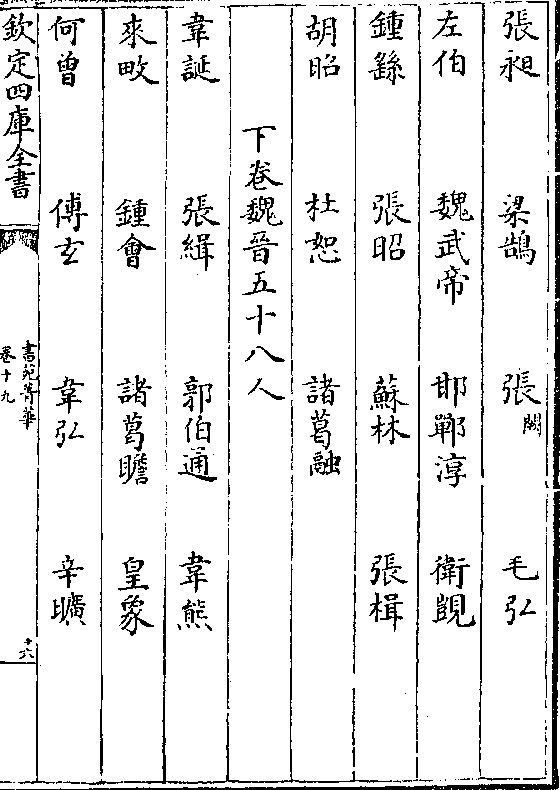 張昶　梁鵠　張闕　毛弘
左伯　魏武帝　邯鄲淳　衛覬
鍾繇　張昭　蘇林　張楫
胡昭　杜恕　諸葛融
下卷魏晉五十八人
韋誕　張緝　郭伯通　韋熊
來敃　鍾會　諸葛瞻　皇象
何曾　傅玄　韋弘　辛曠
欽定四庫全書
書苑菁華
卷十九
十六